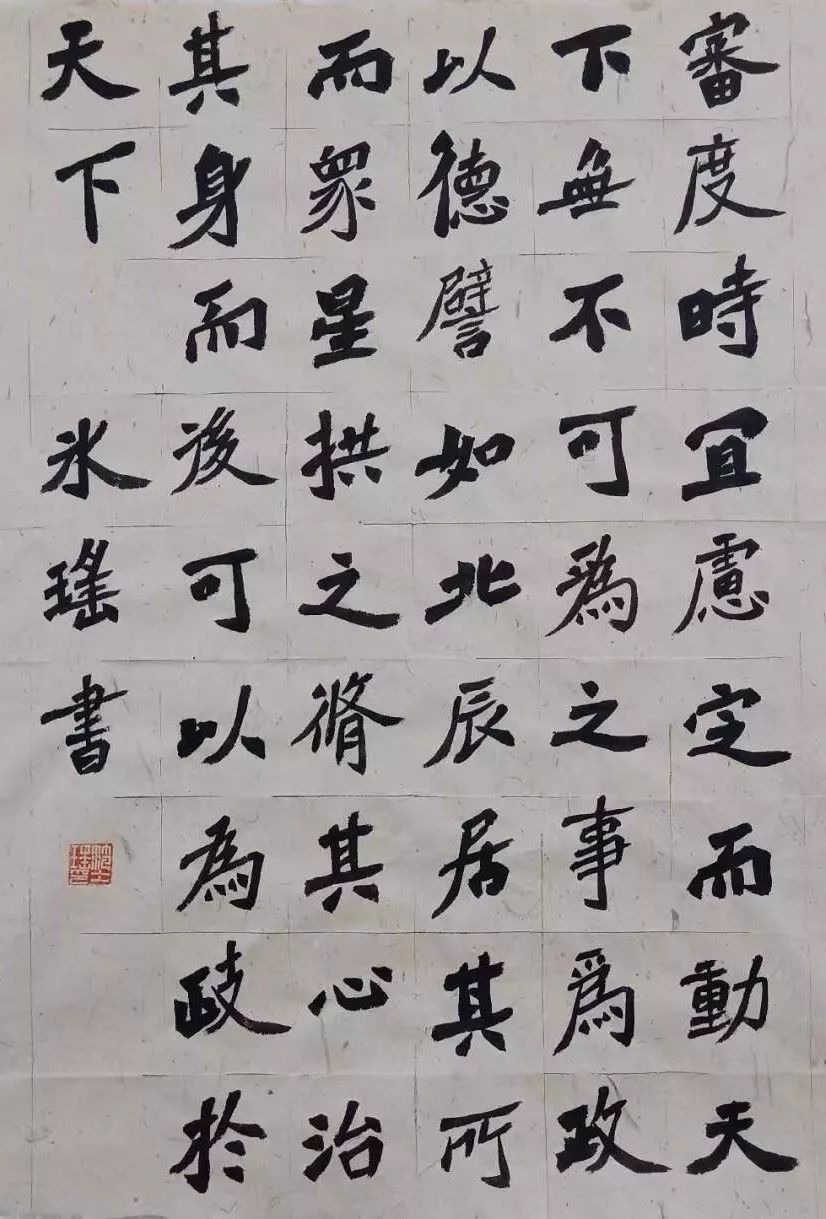 審度時宜慮定而動天
下無不可爲之事爲政
以德譬如北辰居其所
而衆星拱之脩其心治
其身而後可以為政於
天下
冰瑤書